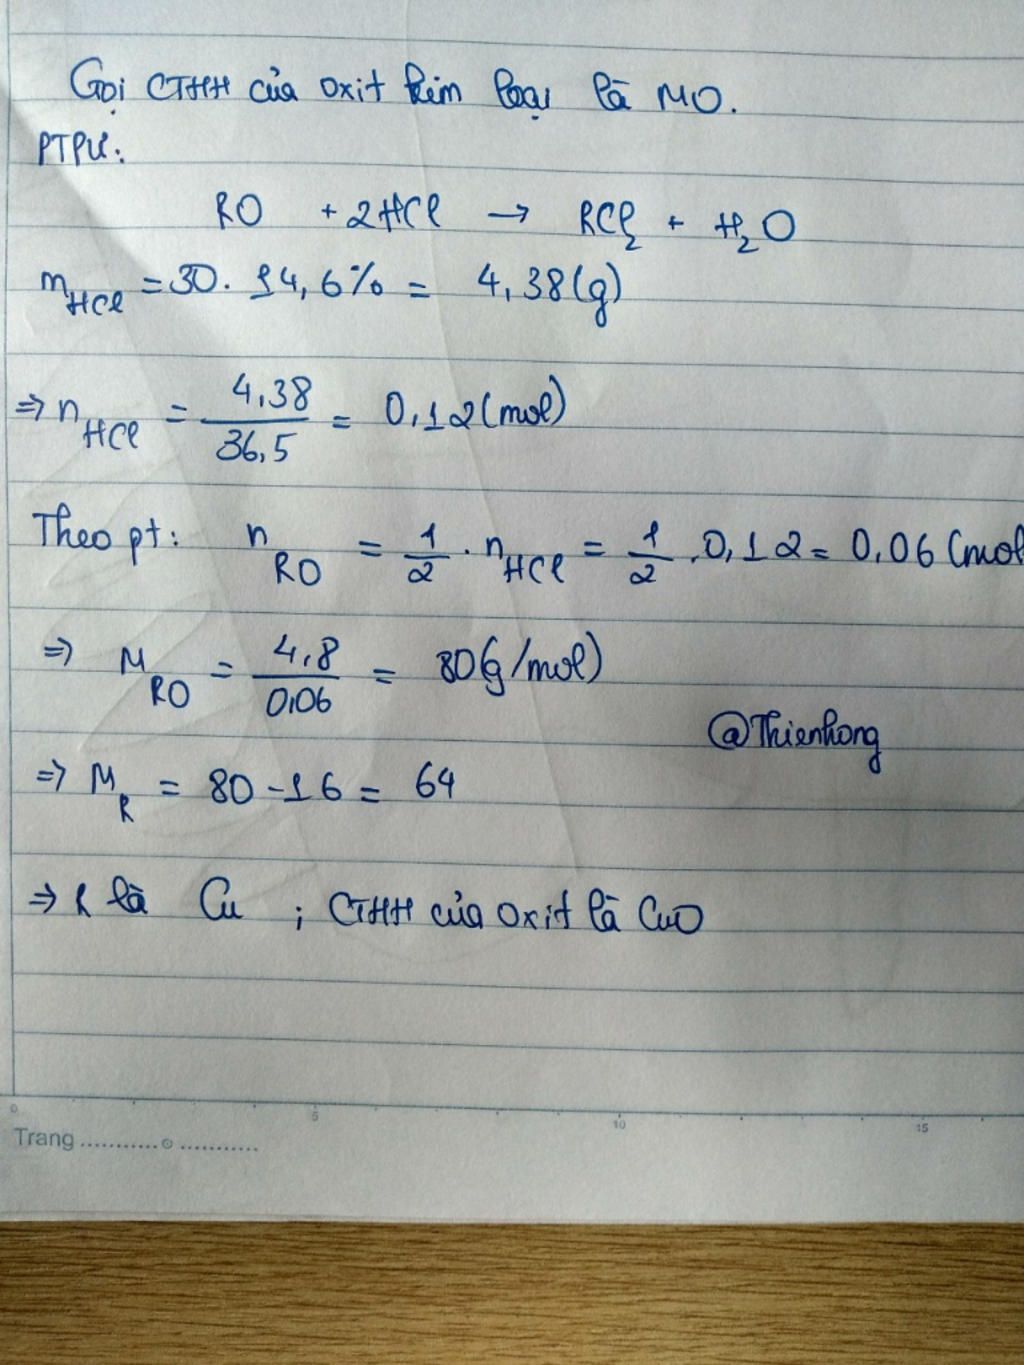 Gọi CTHH của oxit kim loại là MO.
PTPƯ:
RO + 2HCl → RCl₂ + H₂O
m_HCl = 30. 14,6% = 4,38(g)
⇒ n_HCl = 4,38/36,5 = 0,12(mol)
Theo pt: n_RO = 1/2 . n_HCl = 1/2 . 0,12 = 0,06 (mol
⇒ M_RO = 4,8/0,06 = 80(g/mol)
@Thienhong
⇒ M_R = 80 - 16 = 64
⇒ R là Cu ; CTHH của oxit là CuO
0 5 10 15
Trang ...........⊙...........